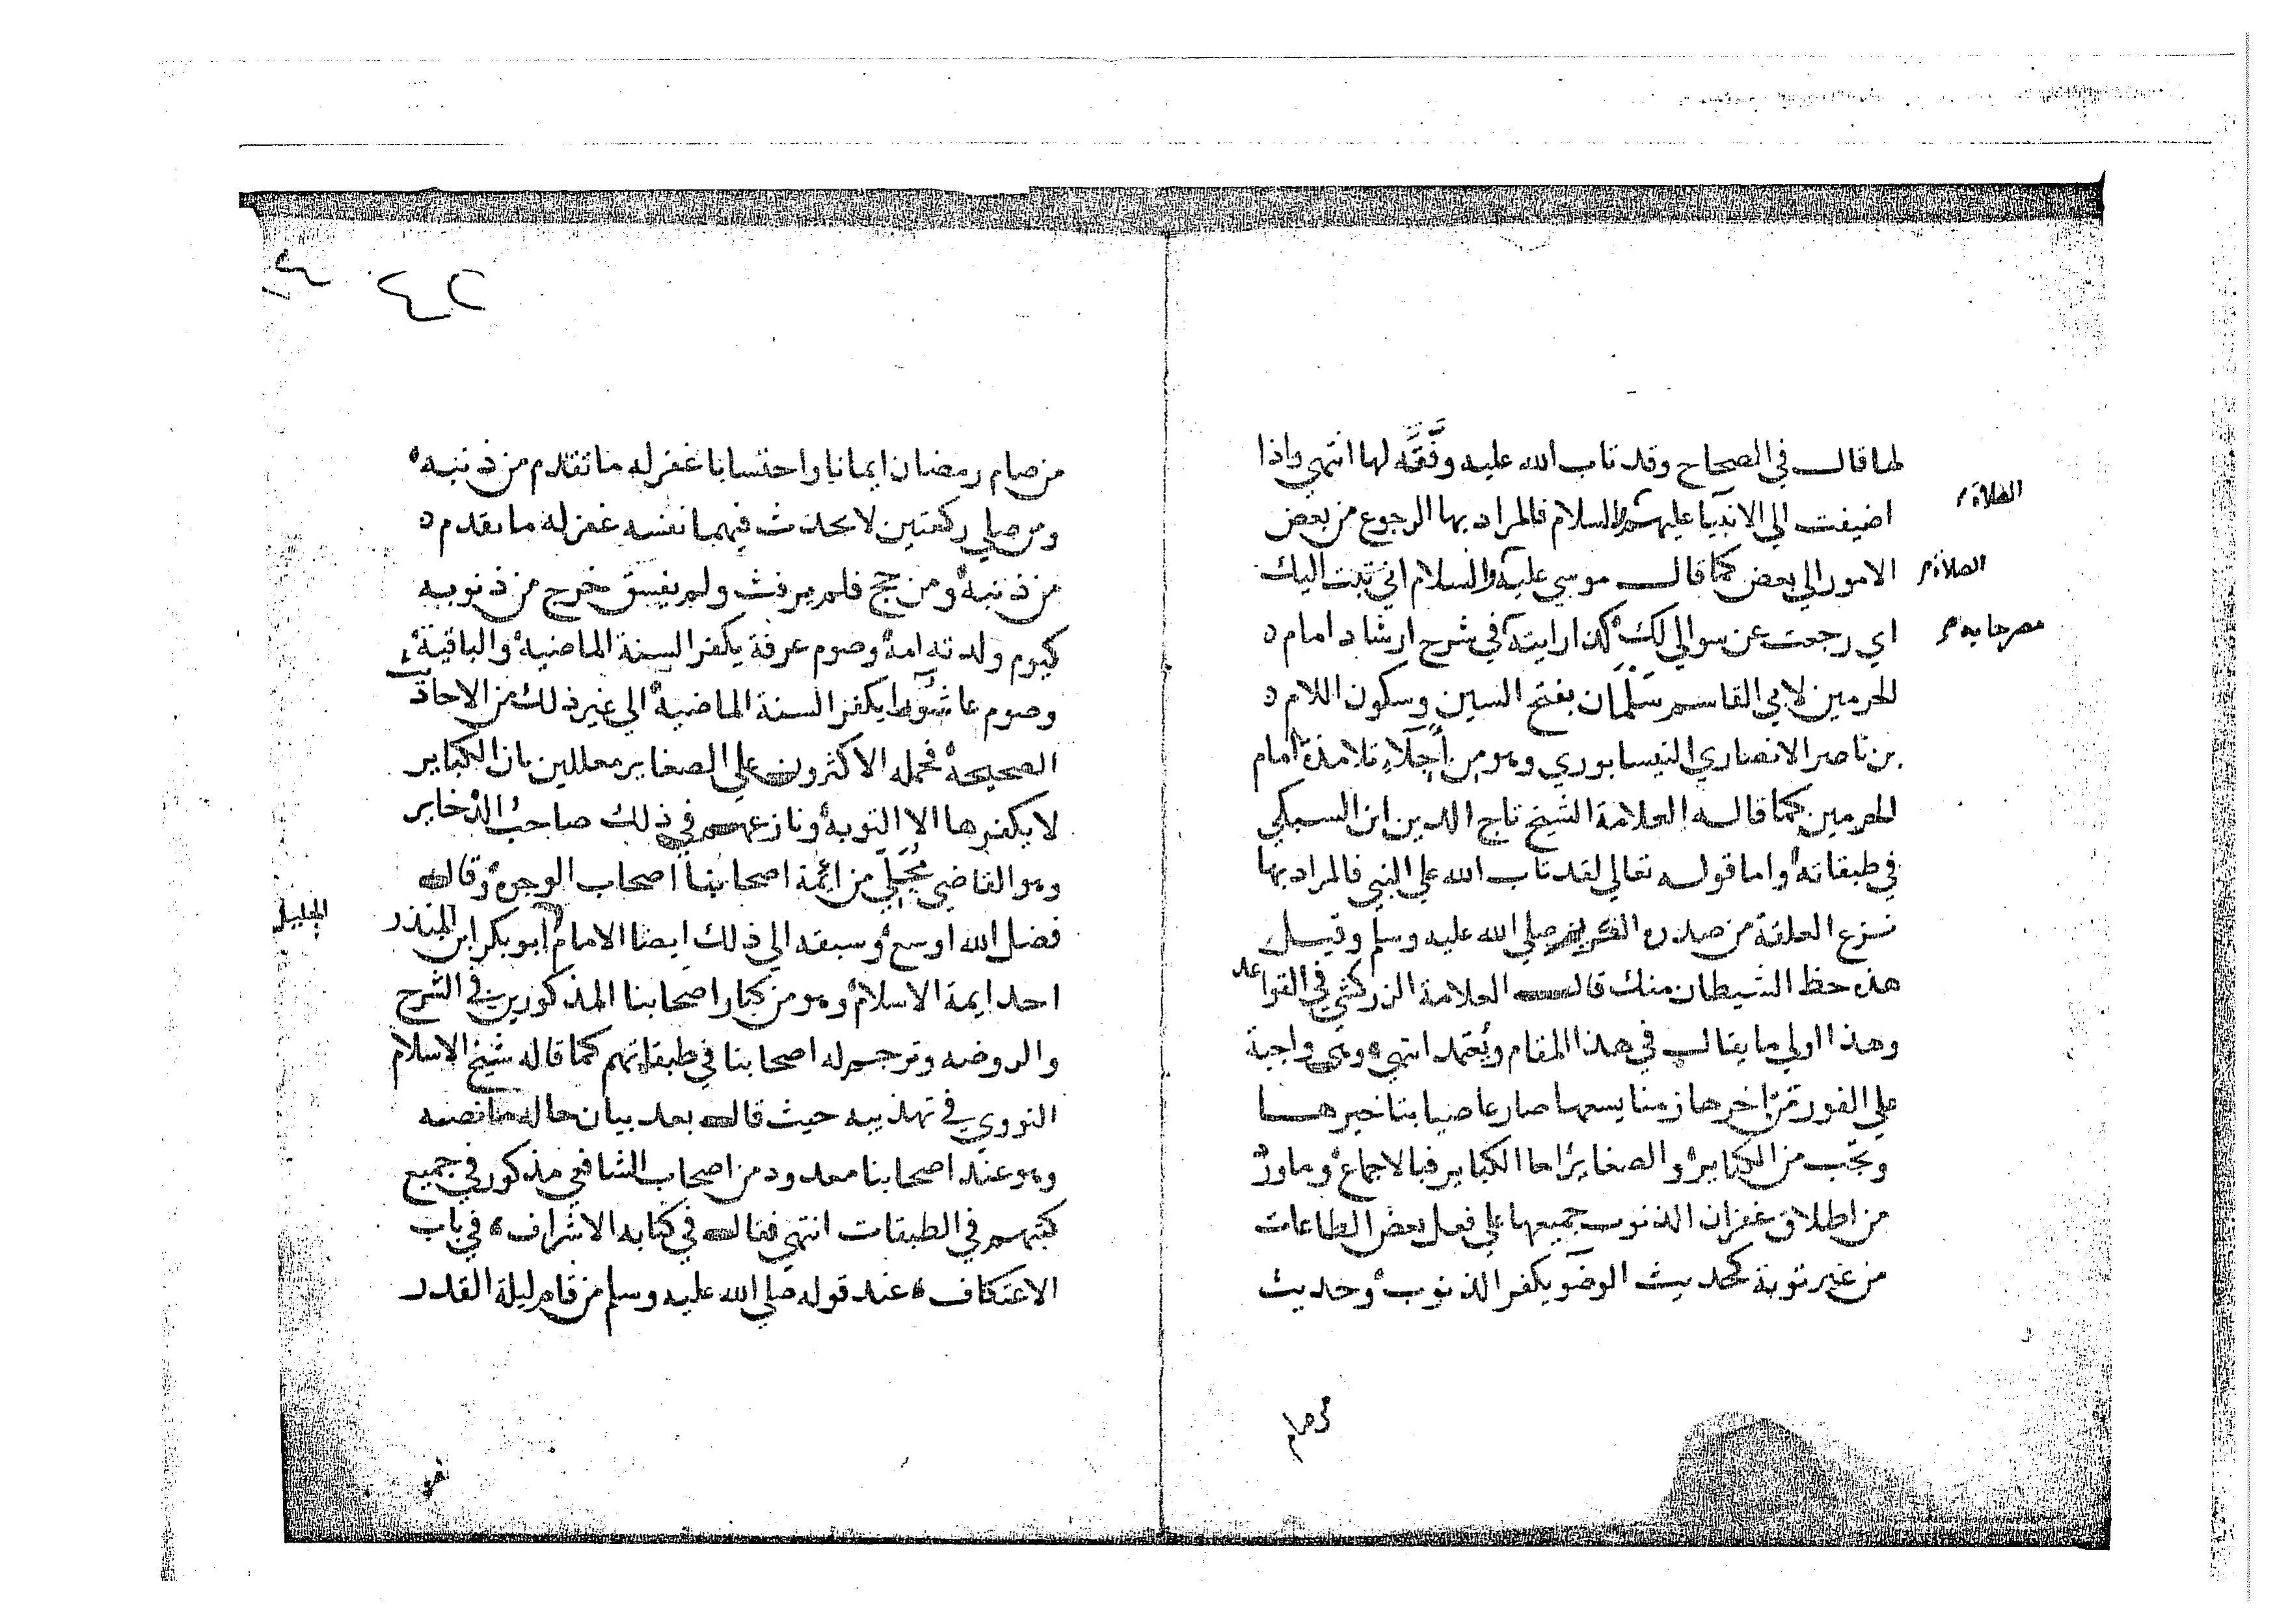 لها قال في الصحاح وقد تاب الله عليه وفَّقَه لها انتهي واذا
اضيفت الي الانبيا عليهم السلام فالمراد بها الرجوع من بعض
الصلاة
الامور الي بعض كما قال موسي عليه والسلام اني تبت اليك
الصلاة
اي رجعت عن سوالي لك كذا رايته في شرح ارشاد امام
الحرمين لابي القاسم سَلْمَان بفتح السين وسكون اللام
بن ناصر الانصاري النيسابوري وهو من اجلاء تلامذة امام
الحرمين كما قاله العلامة الشيخ تاج الدين ابن السبكي
في طبقاته واما قوله تعالي لقد تاب الله علي النبي فالمراد بها
نزع العلقة من صدره الكريم صلي الله عليه وسلم وقيل
هذه حظ الشيطان منك قال العلامة الزركشي في القواعد
وهذا اولي ما يقال في هذا المقام ويُعتمد انتهي وهي واجبة
علي الفور فمن اخرها زمنا يسعها صار عاصيا بتاخيرها
وتجب من الكباير والصغاير اما الكباير فبالاجماع وما ورد
من اطلاق غفران الذنوب جميعها علي فعل بعض الطاعات
من غير توبة كحديث الوضو يكفر الذنوب وحديث
من صام
من صام رمضان ايمانا واحتسابا غفر له ما تقدم من ذنبه
ومن صلي ركعتين لا يحدث فيهما نفسه غفر له ما تقدم
من ذنبه ومن حج فلم يرفث ولم يفسق خرج من ذنوبه
كيوم ولدته امه وصوم عرفة يكفر السنة الماضية والباقية
وصوم عاشورا يكفر السنة الماضية الي غير ذلك من الاحاديث
الصحيحة فحمله الاكثرون علي الصغاير معللين بان الكباير
لا يكفرها الا التوبة ونازعهم في ذلك صاحب الذخاير
وهو القاضي مُجَلِّي من ائمة اصحابنا اصحاب الوجوه وقال
فضل الله اوسع وسبقه الي ذلك ايضا الامام ابو بكر ابن المنذر
الجليل
احد ايمة الاسلام وهو من كبار اصحابنا المذكورين في الشرح
والروضه وترجم له اصحابنا في طبقاتهم كما قاله شيخ الاسلام
النووي في تهذيبه حيث قال بعد بيان حاله ما نصه
وهو عند اصحابنا معدود من اصحاب الشافعي مذكور في جميع
كتبهم في الطبقات انتهي فقال في كتابه الاشراف في باب
الاعتكاف عند قوله صلي الله عليه وسلم من قام ليلة القدر